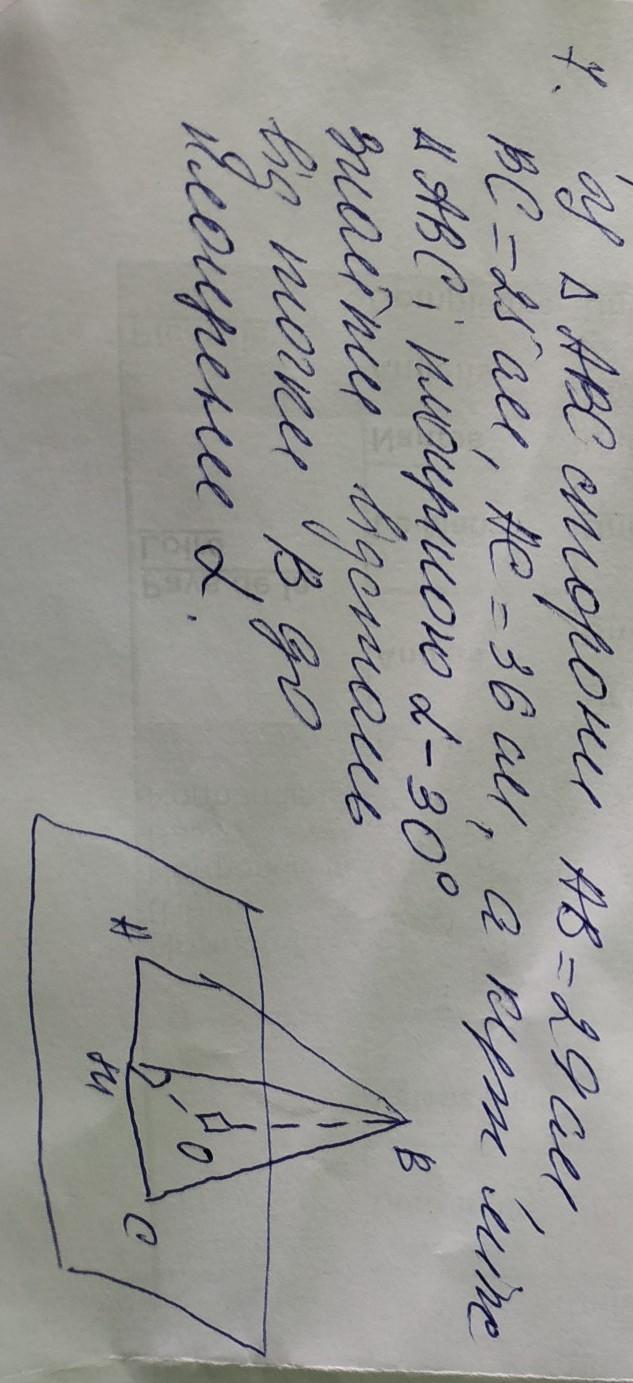 7. У Δ ABC сторони AB = 29 см
BC = 25 см, AC = 36 см, а кут між
Δ ABC і площиною α - 30°
знайти відстань
від точки B до
площини α.
B
A
M
O
C